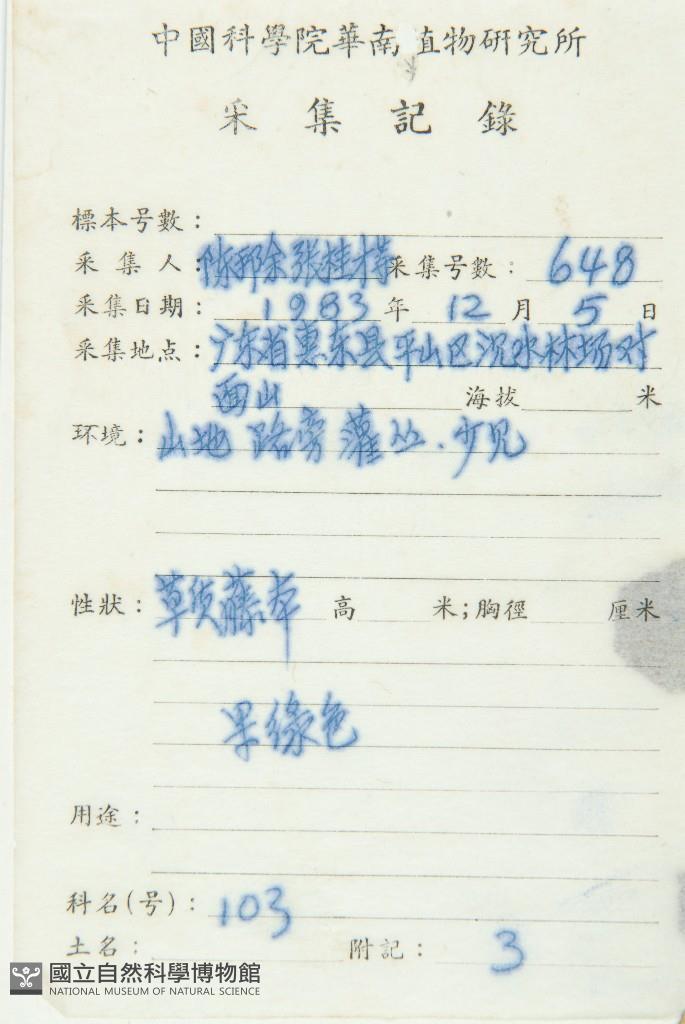 中國科學院華南植物研究所
采集記錄
標本号數：
采集人：陈邦余 张桂才 采集号數：648
采集日期：1983年12月5日
采集地点：广东省惠东县平山区沉水林场对
面山 海拔 米
环境：山地路旁灌丛.少见
性狀：草质藤本 高 米；胸徑 厘米
果绿色
用途：
科名(号)：103
土名： 附記：3
國立自然科學博物館
NATIONAL MUSEUM OF NATURAL SCIENCE